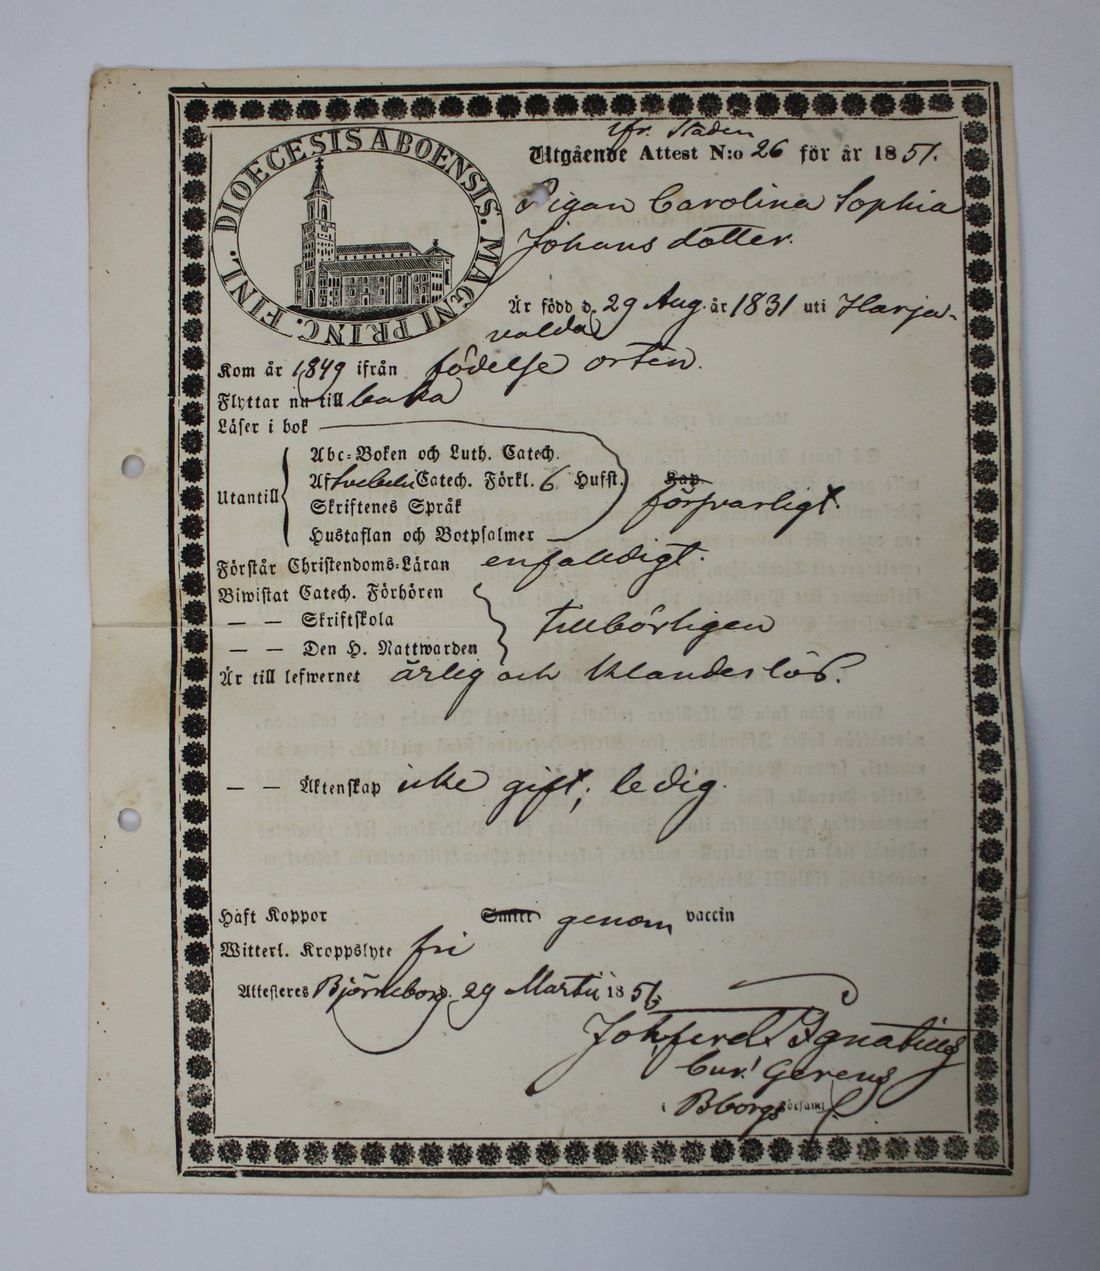 DIOECESIS ABOENSIS. MAGNI PRINC. FINL.
fr. Staden
Utgående Attest N:o 26 för år 1851.
Pigan Carolina Sophia
Johansdotter.
Är född d. 29 Aug. år 1831 uti Harja-
valda
Kom år 1849 ifrån födelse orten.
Flyttar nu till baka
Läser i bok
Abc-Boken och Luth. Catech.
Af Svebelii Catech. Förkl. 6 Hufst. Kap.
Utantill
Skriftenes Språk försvarligt.
Hustaflan och Botpsalmer
Förstår Christendoms-Läran enfaldigt.
Biwistat Catech. Förhören
— — Skriftskola tillbörligen
— — Den H. Nattwarden
Är till lefwernet ärlig och klanderlös.
— — Äktenskap icke gift; ledig.
Haft Koppor Smitt genom vaccin
Witterl. Kroppslyte fri
Attesteres Björneborg. 29 Martii 1851
Joh. Ferd. Ignatius
Cur. Gerens
i Bborgs Församl.